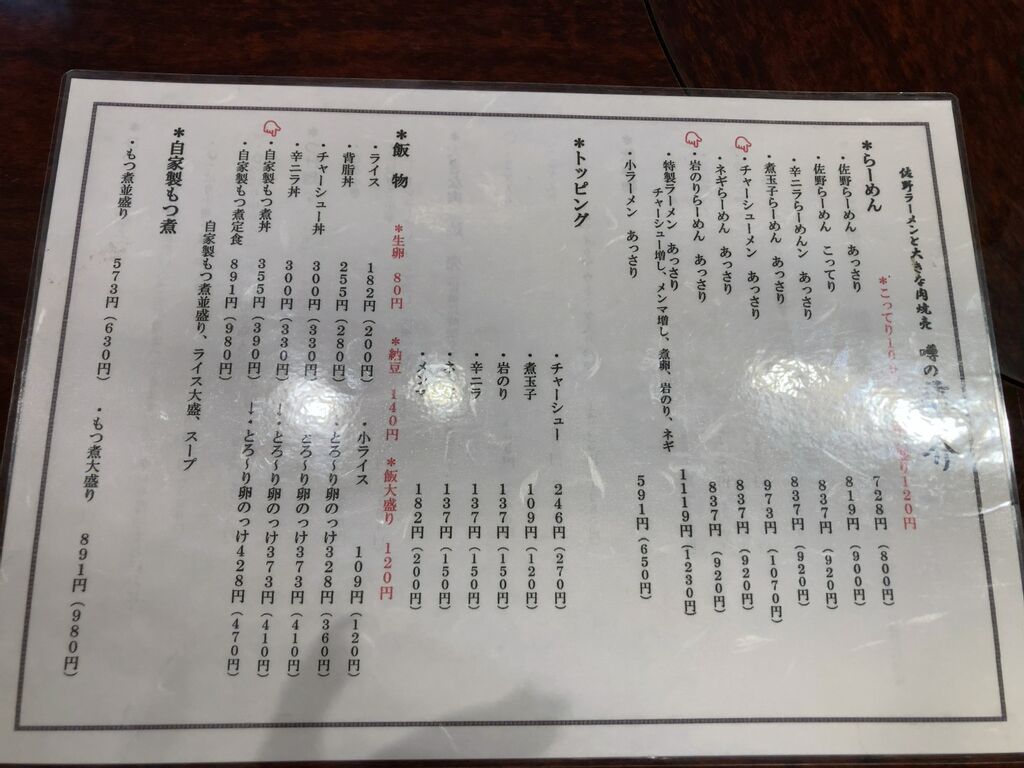 佐野ラーメンと大きな肉焼売 噂の
＊らーめん
＊こってり 120円
・佐野らーめん あっさり 728円（800円）
・佐野らーめん こってり 819円（900円）
・辛ニラらーめんン あっさり 837円（920円）
・煮玉子らーめん あっさり 837円（920円）
・チャーシューメン あっさり 973円（1070円）
・ネギらーめん あっさり 837円（920円）
・岩のりらーめん あっさり 837円（920円）
・特製ラーメン あっさり 1119円（1230円）
チャーシュー増し、メンマ増し、煮卵、岩のり、ネギ
・小ラーメン あっさり 591円（650円）
＊トッピング
・チャーシュー 246円（270円）
・煮玉子 109円（120円）
・岩のり 137円（150円）
・辛ニラ 137円（150円）
・ネ 137円（150円）
・メンマ 182円（200円）
＊飯 物
＊生卵 80円 ＊納豆 140円 ＊飯大盛り 120円
・ライス 182円（200円） ・小ライス 109円（120円）
・背脂丼 255円（280円） とろ～り卵のっけ328円（360円）
・チャーシュー丼 300円（330円） とろ～り卵のっけ373円（410円）
・辛ニラ丼 300円（330円） →とろ～り卵のっけ373円（410円）
・自家製もつ煮丼 355円（390円） →とろ～り卵のっけ428円（470円）
・自家製もつ煮定食 891円（980円）
自家製もつ煮並盛り、ライス大盛、スープ
＊自家製もつ煮
・もつ煮並盛り 573円（630円） ・もつ煮大盛り 891円（980円）